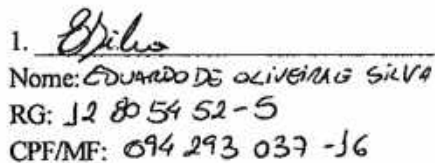 1.
Nome: EDUARDO DE OLIVEIRA E SILVA
RG: 12 80 54 52-5
CPF/MF: 094 293 037-16